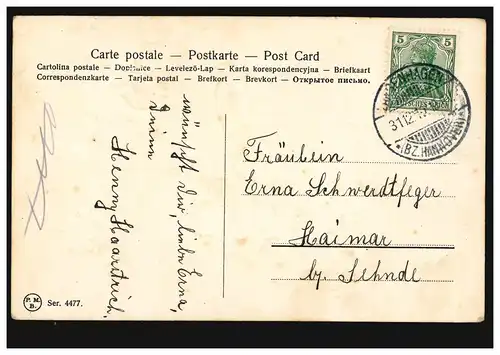 5
Carte postale — Postkarte — Post Card
Cartolina postale — Dopisnice — Levelező-Lap — Karta korespondencyjna — Briefkaart
Correspondenzkarte — Tarjeta postal — Brefkort — Brevkort — Открытое письмо.
31.12.
(BZ. HANNOVER)
wünscht Dir, liebe Erna,
Deine
Henny
Fräulein
Erna Schwerdtfeger
Haimar
b. Sehnde
P. M. B.
Ser. 4477.